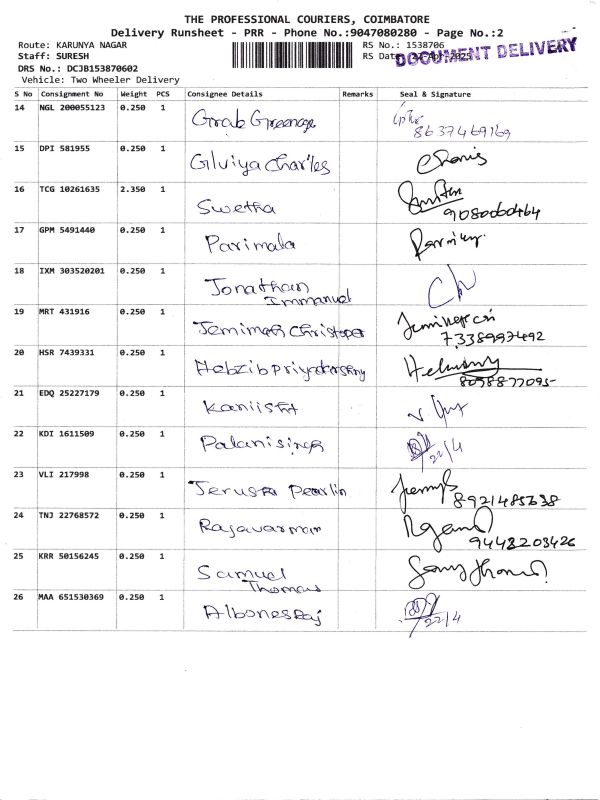 THE PROFESSIONAL COURIERS, COIMBATORE
Delivery Runsheet - PRR - Phone No.:9047080280 - Page No.:2
Route: KARUNYA NAGAR
RS No.: 1538706
Staff: SURESH
RS Date: 22-Apr-2025
DOCUMENT DELIVERY
DRS No.: DCJB153870602
Vehicle: Two Wheeler Delivery
S No Consignment No Weight PCS Consignee Details Remarks Seal & Signature
14 NGL 200055123 0.250 1 Grab Greenage
8637469169
15 DPI 581955 0.250 1 Gluiya Charles
16 TCG 10261635 2.350 1 Swetha
9080060464
17 GPM 5491440 0.250 1 Parimala
18 IXM 303520201 0.250 1 Jonathan
Immanuel
19 MRT 431916 0.250 1 Jemimah Christoper
7338993492
20 HSR 7439331 0.250 1 Hebzibpriyadarshny
8098877095
21 EDQ 25227179 0.250 1 Kaniisha
22 KDI 1611509 0.250 1 Palanisingh
22/4
23 VLI 217998 0.250 1 Jerusha Pearlin
8921485638
24 TNJ 22768572 0.250 1 Rajavarman
9443203426
25 KRR 50156245 0.250 1 Samuel
Thomas
26 MAA 651530369 0.250 1 Albonesraj
22/4